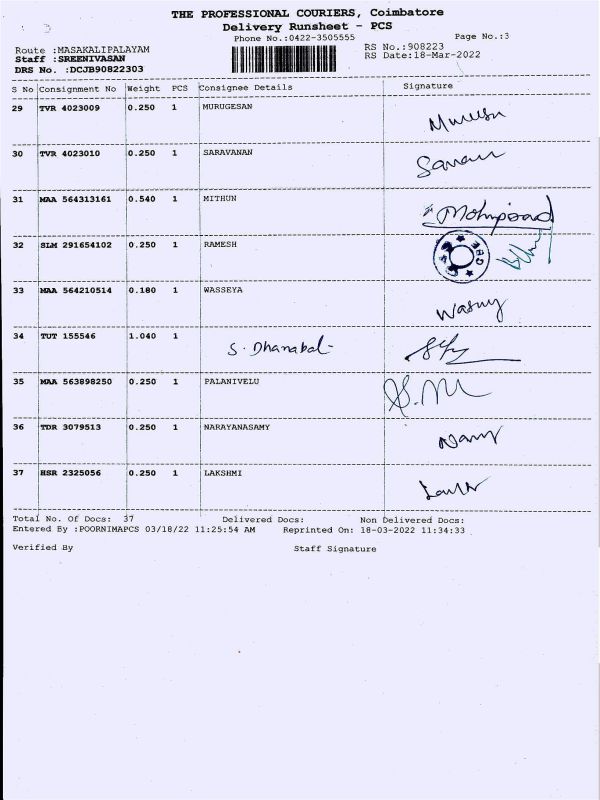 THE PROFESSIONAL COURIERS, Coimbatore
Delivery Runsheet - PCS
Phone No.:0422-3505555
Page No.:3
Route :MASAKALIPALAYAM
RS No.:908223
Staff :SREENIVASAN
RS Date:18-Mar-2022
DRS No. :DCJB90822303
S No Consignment No Weight PCS Consignee Details Signature
29 TVR 4023009 0.250 1 MURUGESAN
30 TVR 4023010 0.250 1 SARAVANAN
31 MAA 564313161 0.540 1 MITHUN
32 SLM 291654102 0.250 1 RAMESH
33 MAA 564210514 0.180 1 WASSEYA
34 TUT 155546 1.040 1 S. Dhanabal-
35 MAA 563898250 0.250 1 PALANIVELU
36 TDR 3079513 0.250 1 NARAYANASAMY
37 HSR 2325056 0.250 1 LAKSHMI
Total No. Of Docs: 37 Delivered Docs: Non Delivered Docs:
Entered By :POORNIMAPCS 03/18/22 11:25:54 AM Reprinted On: 18-03-2022 11:34:33
Verified By Staff Signature